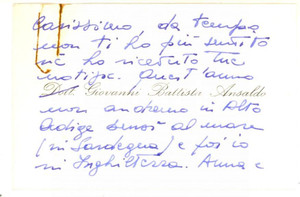 Carissimo, da tempo
non ti ho più sentito
né ho ricevuto tue
notizie. Quest'anno
Dott. Giovanni Battista Ansaldo
non andremo in Alto
Adige bensì al mare
(in Sardegna) e poi io
in Inghilterra. Anna e